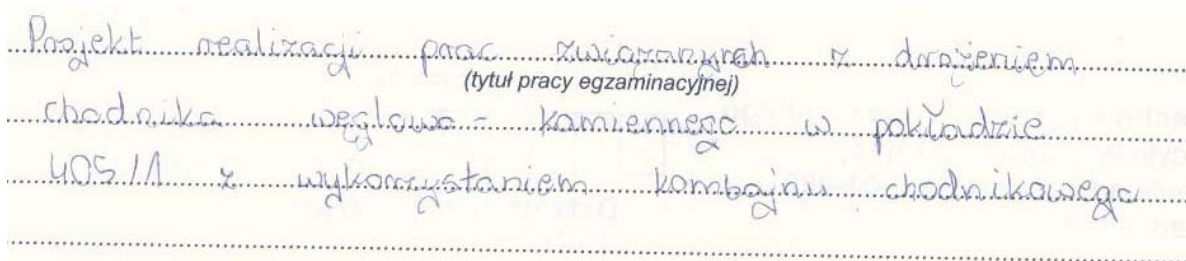 Projekt realizacji prac związanych z drążeniem
(tytuł pracy egzaminacyjnej)
chodnika węglowo-kamiennego w pokładzie
405/1 z wykorzystaniem kombajnu chodnikowego